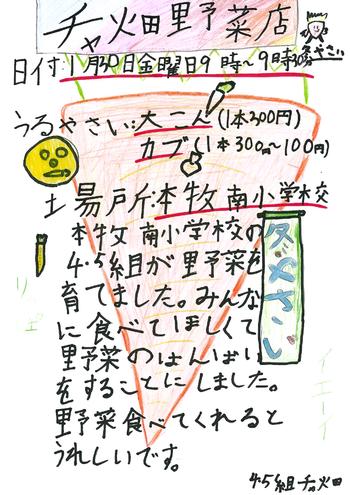 チャ火田里予菜店
冬やさい
日付:1月30日金曜日9時〜9時30分
うるやさい:大こん(1本200円)
カブ(1本30円〜100円)
場所:本牧南小学校
本牧南小学校の
4・5組が里予菜を
育てました。みんな
に食べてほしくて
里予菜のはんばい
をすることにしました。
里予菜食べてくれると
うれしいです。
冬やさい
イエーイ
4・5組チャ火田